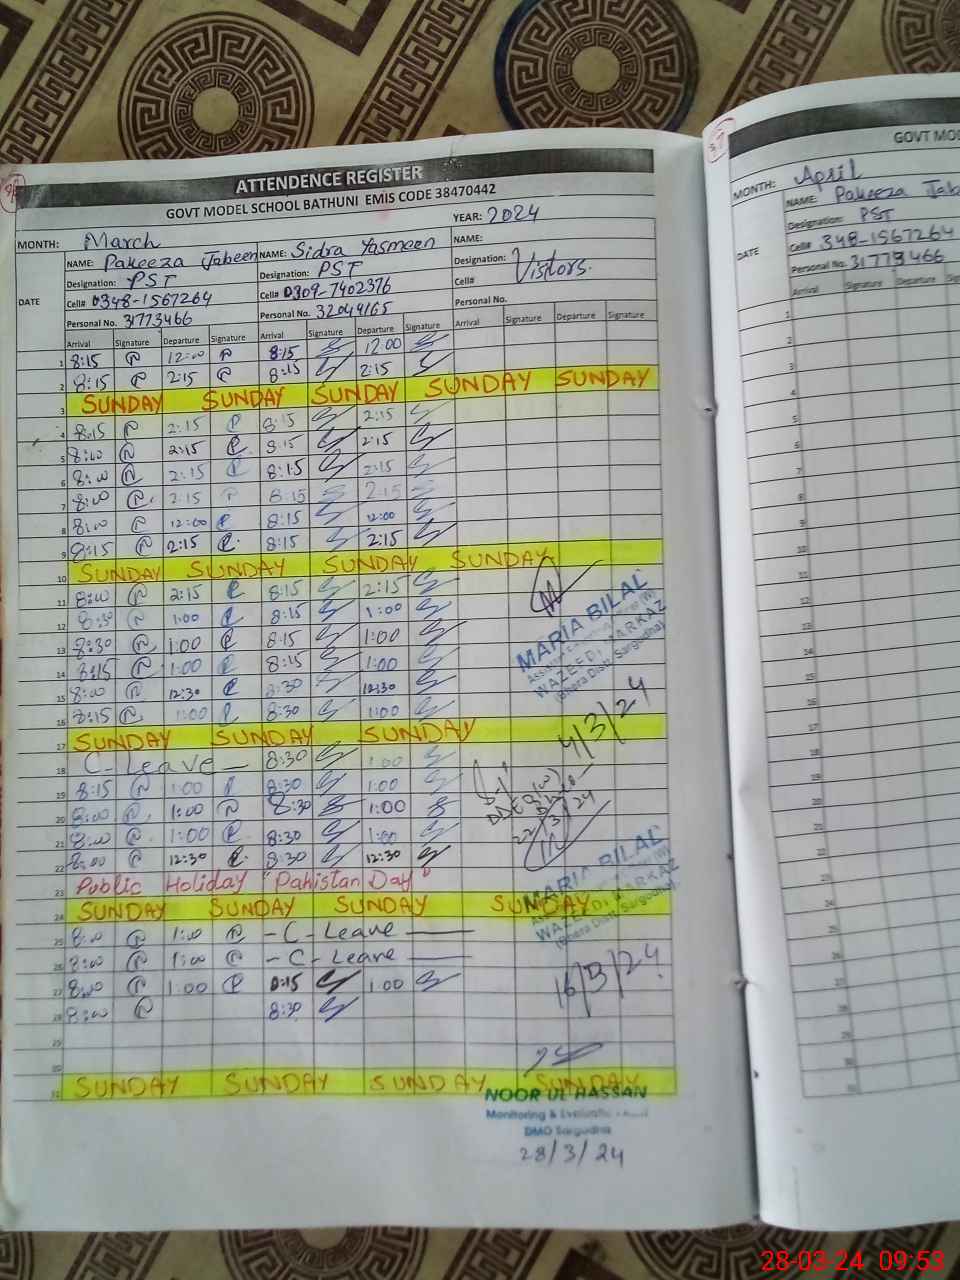 ATTENDENCE REGISTER
GOVT MODEL SCHOOL BATHUNI EMIS CODE 38470442
MONTH: March YEAR: 2024
DATE
NAME: Pakeeza Jabeen NAME: Sidra Yasmeen NAME:
Designation: PST Designation: PST Designation: Visitors.
Cell# 0348-1567264 Cell# 0309-7402376 Cell#
Personal No. 31773466 Personal No. 32049165 Personal No.
Arrival Signature Departure Signature Arrival Signature Departure Signature Arrival Signature Departure Signature
1 8:15 12:00 8:15 12:00
2 8:15 2:15 8:15 2:15
3 SUNDAY SUNDAY SUNDAY SUNDAY SUNDAY
4 8:15 2:15 8:15 2:15
5 8:00 2:15 8:15 2:15
6 8:00 2:15 8:15 2:15
7 8:00 2:15 8:15 2:15
8 8:00 12:00 8:15 12:00
9 8:15 2:15 8:15 2:15
10 SUNDAY SUNDAY SUNDAY SUNDAY
11 8:00 2:15 8:15 2:15
12 8:30 1:00 8:15 1:00
13 8:30 1:00 8:15 1:00
14 8:15 1:00 8:15 1:00
15 8:00 12:30 8:30 12:30
16 8:15 1:00 8:30 1:00
17 SUNDAY SUNDAY SUNDAY
18 C-Leave 8:30 1:00
19 8:15 1:00 8:30 1:00
20 8:00 1:00 8:30 1:00
21 8:00 1:00 8:30 1:00
22 8:00 12:30 8:30 12:30
23 Public Holiday "Pakistan Day"
24 SUNDAY SUNDAY SUNDAY SUNDAY
25 8:00 1:00 - C - Leave
26 8:00 1:00 - C - Leave
27 8:00 1:00 8:15 1:00
28 8:00 8:30
29
30
31 SUNDAY SUNDAY SUNDAY SUNDAY
MARIA BILAL
WAZEEDI MARKAZ
(Bhera Distt. Sargodha)
4/3/24
22/3/24
MARIA BILAL
WAZEEDI MARKAZ
(Bhera Distt. Sargodha)
16/3/24
NOOR UL HASSAN
Monitoring &
DMO Sargodha
28/3/24
37
GOVT MOD
MONTH: April
DATE
NAME: Pakeeza Jabe
Designation: PST
Cell# 348-1567264
Personal No. 31773466
Arrival Signature Departure
1
2
3
4
5
6
7
8
9
10
11
12
13
14
15
16
17
18
19
20
21
22
23
24
25
26
27
28
29
30
31
28-03-24 09:53